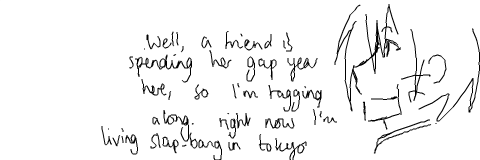 Well, a friend is
spending her gap year
here, so I'm tagging
along. right now I'm
living slap-bang in tokyo